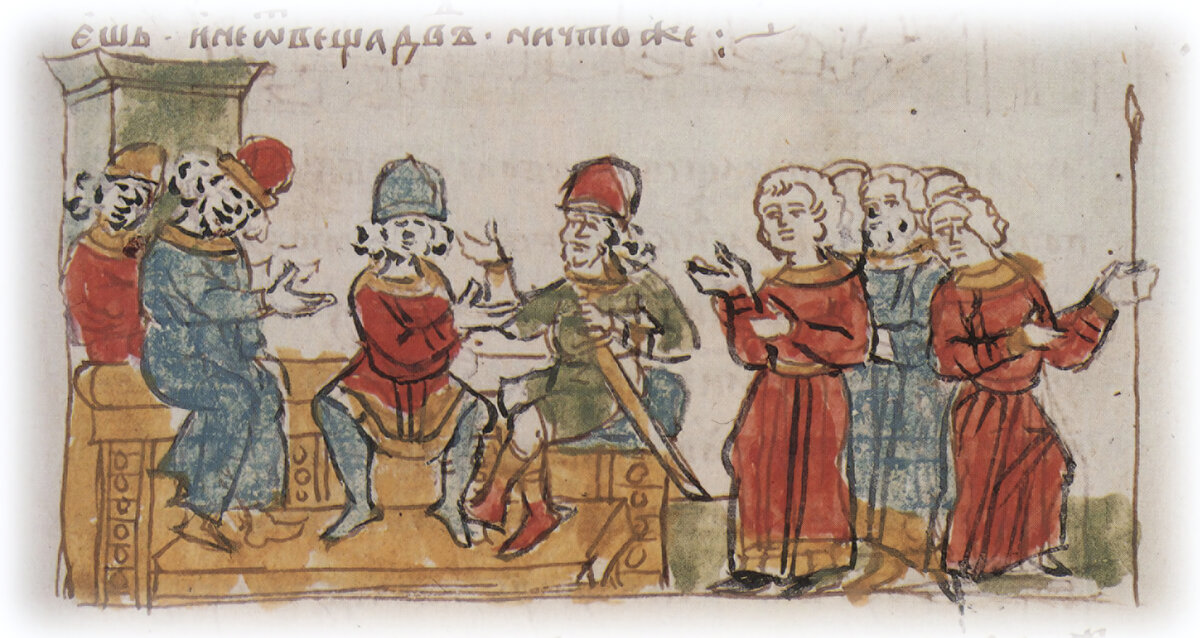 ешь · и не ѿвеща дв҃ъ · ничто же :